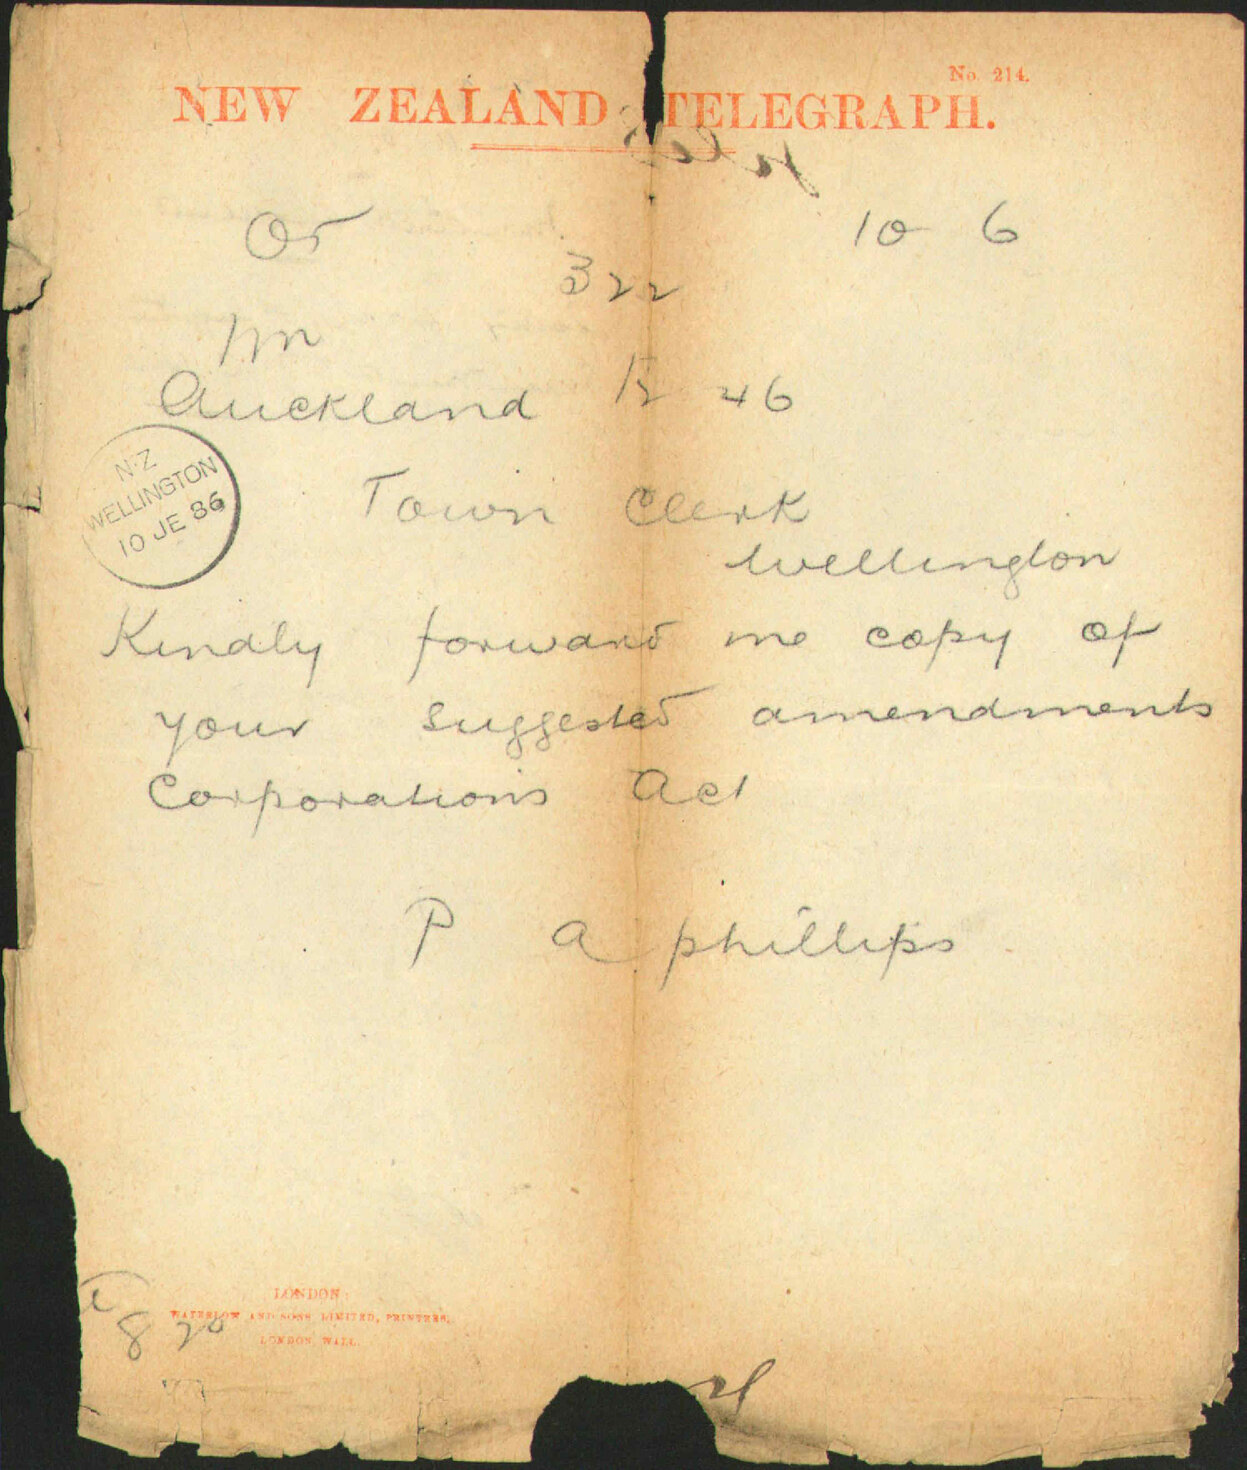 No. 214.
NEW ZEALAND TELEGRAPH.
10 6
322
Auckland 46
N.Z
WELLINGTON
10 JE 86
Town Clerk
Wellington
Kindly forward me copy of
your suggested amendments
Corporations Act
P A phillips
8 20
LONDON:
WATERLOW AND SONS LIMITED, PRINTERS,
LONDON WALL.